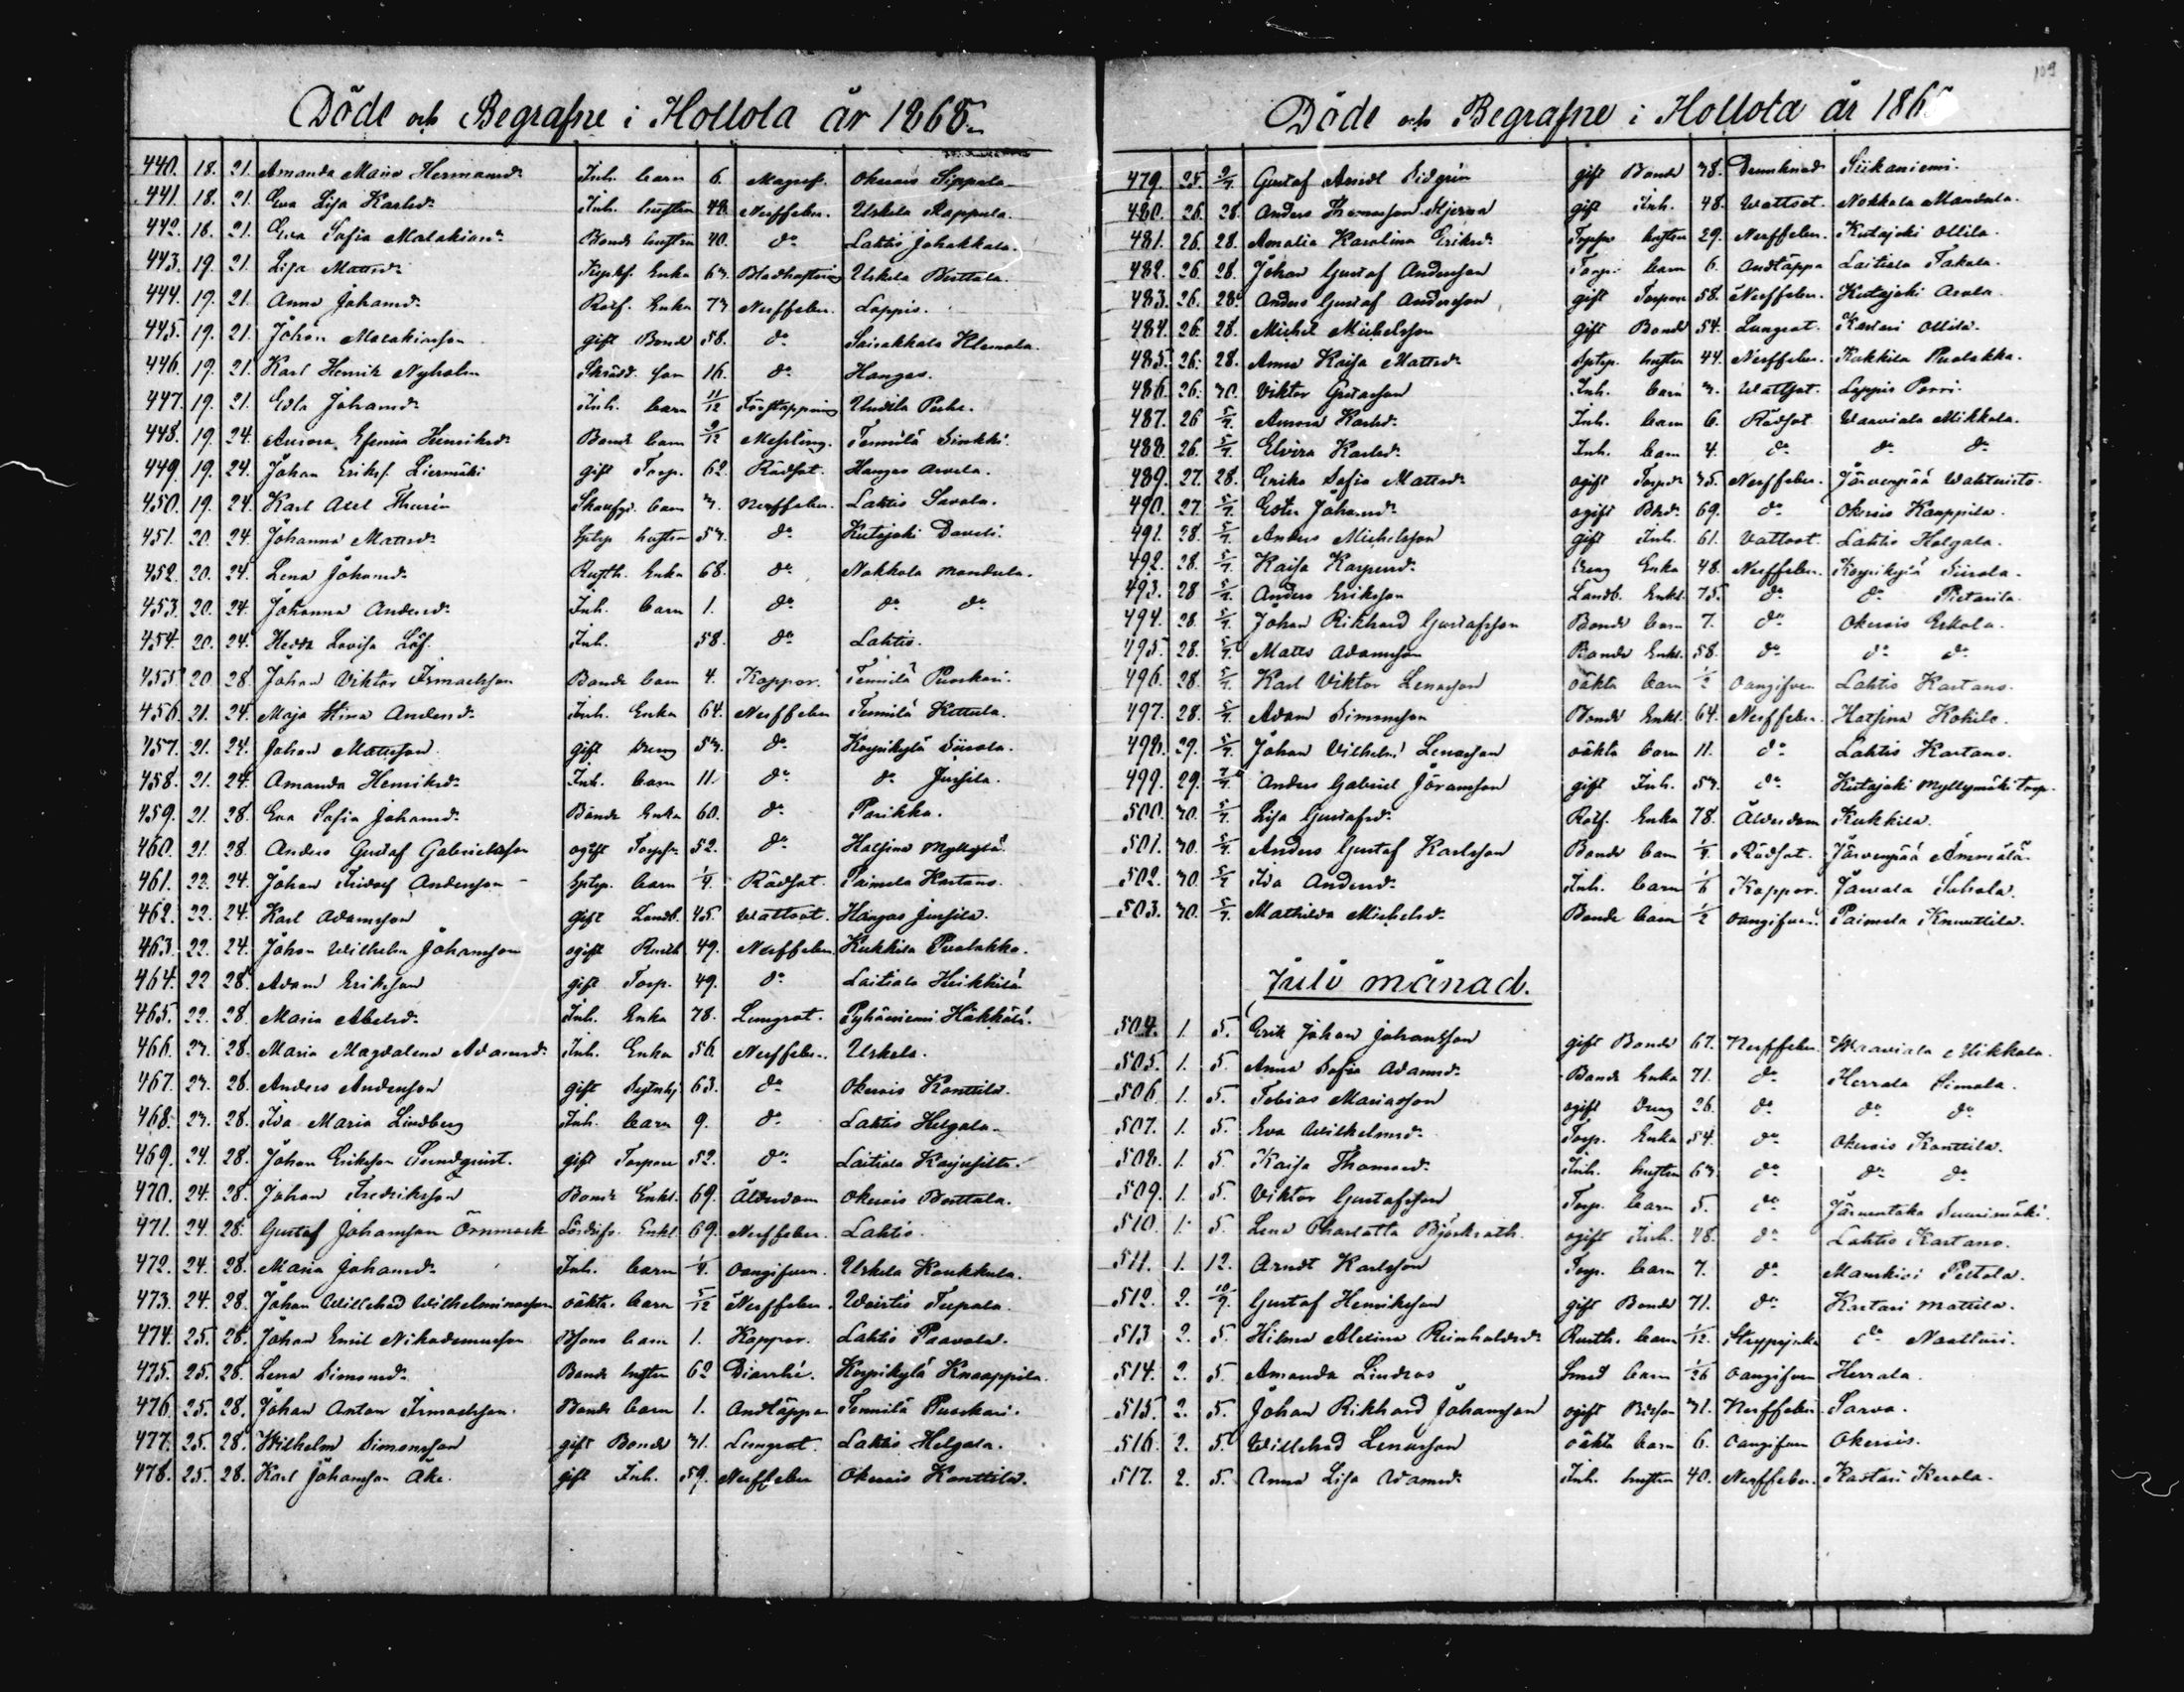 Döde och Begrafne i Hollola år 1868.
440. 18. 21. Amanda Maria Hermansdr Inh. barn 6. Magref. Okerois Sippala
441. 18. 21. Eva Lisa Karlsdr Inh. hustru 48. Nerffeber. Urkela Rappula.
442. 18. 21. Eva Sofia Malakiasdr Bonde hustru 40. do Lahtis Johakkala.
443. 19. 21. Lisa Mattsdr Enka 63. Urkela
444. 19. 21. Anna Johansdr Rotf. Enka 73 Nerffeber. Lappis.
445. 19. 21. Johan Malakiasson gift Bonde 58. do Sairakkala Klemola.
446. 19. 21. Karl Henrik Nyholm Skrädd. son 16. do Hangas.
447. 19. 21. Edla Johansdr Inh. barn 11/12 Förstoppning Uudila
448. 19. 24. Aurora Efemia Henriksdr Bonde barn 9/12 Messling. Tennilä Simkki.
449. 19. 24. Johan Eriks. Liermäki gift Torp. 62. Rödsot. Hangas Arvela.
450. 19. 24. Karl Axel Thurén barn 3. Nerffeber. Lahtis Savola.
451. 20. 24. Johanna Mattsdr hustru 53. do Kutajoki
452. 20. 24. Lena Johansdr Rusth. Enka 68. do Nokkola Mandula.
453. 20. 24. Johanna Andersdr Inh. barn 1. do do do
454. 20. 24. Hedda Lovisa Löf. Inh. 58. do Lahtis.
455. 20 28. Johan Viktor Ismaelsson Bonde barn 4. Koppor. Tennilä Puorkari.
456. 21. 24. Maja Stina Andersdr Inh. Enka 64. Nerffeber Tennilä Kettula.
457. 21. 24. Johan Mattsson gift dreng 53. do Korpikylä Siirola.
458. 21. 24. Amanda Henriksdr Inh. barn 11. do do Jussila.
459. 21. 28. Eva Sofia Johansdr Bonde Enka 60. do Parikka.
460. 21. 28 Anders Gustaf Gabrielsson ogift 52. do Hatsina Myllylä
461. 22. 24. Johan Fridolf Andersson barn 1/4. Rödsot. Paimela Kartano.
462. 22. 24. Karl Adamsson gift Landb. 45. Wattsot. Hangas Jussila.
463. 22. 24. Johan Wilhelm Johansson ogift Rusth 49. Nerffeber. Kukkila Puolakka.
464. 22 28. Adam Eriksson gift Torp. 49. do Laitiala Heikkilä
465. 22. 28. Maria Abelsdr Inh. Enka 78. Lungsot. Pyhäniemi Häkkälä.
466. 23. 28. Maria Magdalena Adamsdr Inh. Enka 56. Nerffeber. Urkela.
467. 23. 28. Anders Andersson gift 63. do Okerois Konttila.
468. 23. 28. Ida Maria Lindberg Inh. barn 9. do Lahtis Helgala.
469. 24. 28. Johan Eriksson Sundqvist. gift Torpare 52. do Laitiala Karjusilta.
470. 24. 28. Johan Fredriksson Bonde Enkl. 69. Ålderdom Okerois Perttala.
471. 24. 28. Gustaf Johansson Örnmark Enkl 69. Nerffeber. Lahtis.
472. 24. 28. Maria Johansdr Inh. barn 1/4. Oangifven. Urkela Koukkula.
473. 24. 28. Johan Willehad Wilhelminasson oäkta barn 5/12 Nerffeber. Wairtis Tupala.
474. 25. 28. Johan Emil Nikodemusson Bsons barn 1. Koppor. Lahtis Paavola.
475. 25. 28. Lena Simonsdr Bonde hustru 62 Diarrhé. Korpikylä Knaappila.
476. 25. 28. Johan Anton Ismaelsson. Bonde barn 1. Andtäppa Tennilä Puorkari.
477. 25. 28. Wilhelm Simonsson gift Bonde 31. Lungsot. Lahtis Helgala.
478. 25. 28. Karl Johansson Åke gift Inh. 59. Nerffeber Okerois Konttila.
109
Döde och Begrafne i Hollola år 186
479. 25. 2/7. Gustaf Arvid Sidgrén gift Bonde 38. Drunknad Siikaniemi.
480. 26. 28. Anders Thomasson Stjerna gift Inh. 48. Wattsot. Nokkola Mandula.
481. 26. 28. Amalia Karolina Eriksdr hustru 29. Nerffeber. Kutajoki Ollila.
482. 26. 28. Johan Gustaf Andersson Torp. barn 6. Andtäppa Laitiala Takala.
483. 26. 28. Anders Gustaf Andersson gift Torpare 58. Nerffeber. Kutajoki Arola.
484. 26. 28. Michel Michelsson gift Bonde 54. Lungsot. Kastari Ollila.
485. 26. 28. Anna Kaisa Mattsdr hustru 44. Nerffeber. Kukkila Puolakka.
486. 26. 30. Viktor Gustafsson Inh. barn 3. Wattsot. Lappis Porri.
487. 26 5/7. Amora Karlsdr Inh. barn 6. Rödsot Waaviala Mikkola.
488. 26. 5/7. Elvira Karlsdr Inh. barn 4. do do do
489. 27. 28. Erika Sofia Mattsdr ogift Torpdr 35. Nerffeber. Järvenpää Wahteristo.
490. 27. 5/7. Ester Johansdr ogift Bdr 69. do Okerois Kaappila.
491. 28. 5/7. Anders Michelsson gift Inh. 61. Vattsot. Lahtis Helgala.
492. 28. 5/7. Kaisa Kaspersdr Dreng Enka 48. Nerffeber. Korpikylä Siirola.
493. 28 5/7. Anders Eriksson Landb. Enkl. 75. do do Pietarila.
494. 28. 5/7. Johan Rikhard Gustafsson Bonde barn 7. do Okerois Erkola.
495. 28. 5/7. Matts Adamsson Bonde Enkl. 58. do do do
496. 28. 5/7. Karl Viktor Lenasson oäkta barn 1/2 Oangifven Lahtis Kartano.
497. 28. 5/7. Adam Simonsson Bonde Enkl. 64. Nerffeber. Hatsina Kokila.
498. 29. 5/7. Johan Vilhelm Lenasson oäkta barn 11. do Lahtis Kartano.
499. 29. Anders Gabriel Göransson gift Inh. 53. do Kutajoki Myllymäki Torp.
500. 30. 5/7. Lisa Gustafsdr Rotf. Enka 78. Ålderdom Kukkila.
501. 30. 5/7. Anders Gustaf Karlsson Bonde barn 1/4. Rödsot. Järvenpää Ämmälä.
502. 30. 5/7 Ida Andersdr Inh. barn 1/6 Koppor. Jarvala Suhola.
503. 30. 5/7. Mathilda Michelsdr Bonde barn 1/2 Oangifven. Paimela Knuuttila.
Juli månad.
504. 1. 5. Erik Johan Johansson gift Bonde 67. Nerffeber. Waaviala Mikkola.
505. 1. 5. Anna Sofia Adamsdr Bonde Enka 71. do Herrala Simola.
506. 1. 5. Tobias Mariasson ogift dreng 26. do do do
507. 1. 5. Eva Wilhelmsdr Torp. Enka 54. do Okerois Konttila.
508. 1. 5. Kaisa Thomasdr Inh. hustru 63. do do do
509. 1. 5. Viktor Gustafsson Torp. barn 5. do Järventaka Suurimäki.
510. 1. 5. Lena Charlotta Björkrath. ogift Inh. 48. do Lahtis Kartano.
511. 1. 12. Arndt Karlsson Torp. barn 7. do Manskivi Peltola.
512. 2. 10/7. Gustaf Henriksson gift Bonde 71. do Kastari Mattila.
513. 2. 5. Hilma Alexina Reinholdsdr Rusth. barn 1/12. Strypsjuka do Naatturi.
514. 2. 5. Amanda Lindros Smed barn 1/26 Oangifven Herrala.
515. 2. 5. Johan Rikhard Johansson ogift Bdeson 31. Nerffeber Sarva.
516. 2. 5. Willehad Lenasson oäkta barn 6. Oangifven Okerois.
517. 2. 5. Anna Lisa Adamsdr Inh. hustru 40. Nerffeber. Kastari Kerola.